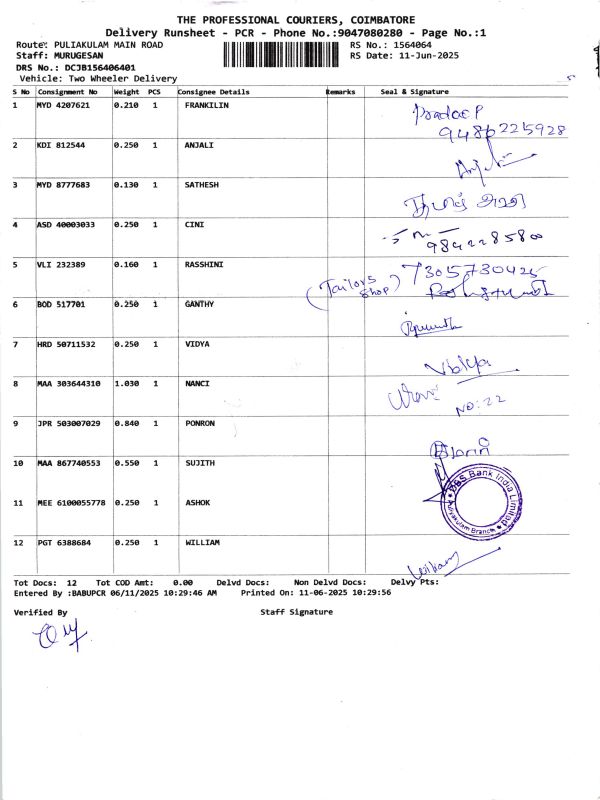 THE PROFESSIONAL COURIERS, COIMBATORE
Delivery Runsheet - PCR - Phone No.:9047080280 - Page No.:1
Route: PULIAKULAM MAIN ROAD RS No.: 1564064
Staff: MURUGESAN RS Date: 11-Jun-2025
DRS No.: DCJB156406401
Vehicle: Two Wheeler Delivery
S No Consignment No Weight PCS Consignee Details Remarks Seal & Signature
1 MYD 4207621 0.210 1 FRANKILIN Pradeep
9486225928
2 KDI 812544 0.250 1 ANJALI
3 MYD 8777683 0.130 1 SATHESH
4 ASD 40003033 0.250 1 CINI
9842285800
5 VLI 232389 0.160 1 RASSHINI (Tailors Shop) 7305730425
6 BOD 517701 0.250 1 GANTHY
7 HRD 50711532 0.250 1 VIDYA Vidya
8 MAA 303644310 1.030 1 NANCI
NO:22
9 JPR 503007029 0.840 1 PONRON
10 MAA 867740553 0.550 1 SUJITH
DBS Bank India Limited
Puliyakulam Branch
11 MEE 6100055778 0.250 1 ASHOK
12 PGT 6388684 0.250 1 WILLIAM
Tot Docs: 12 Tot COD Amt: 0.00 Delvd Docs: Non Delvd Docs: Delvy Pts:
Entered By :BABUPCR 06/11/2025 10:29:46 AM Printed On: 11-06-2025 10:29:56
Verified By Staff Signature